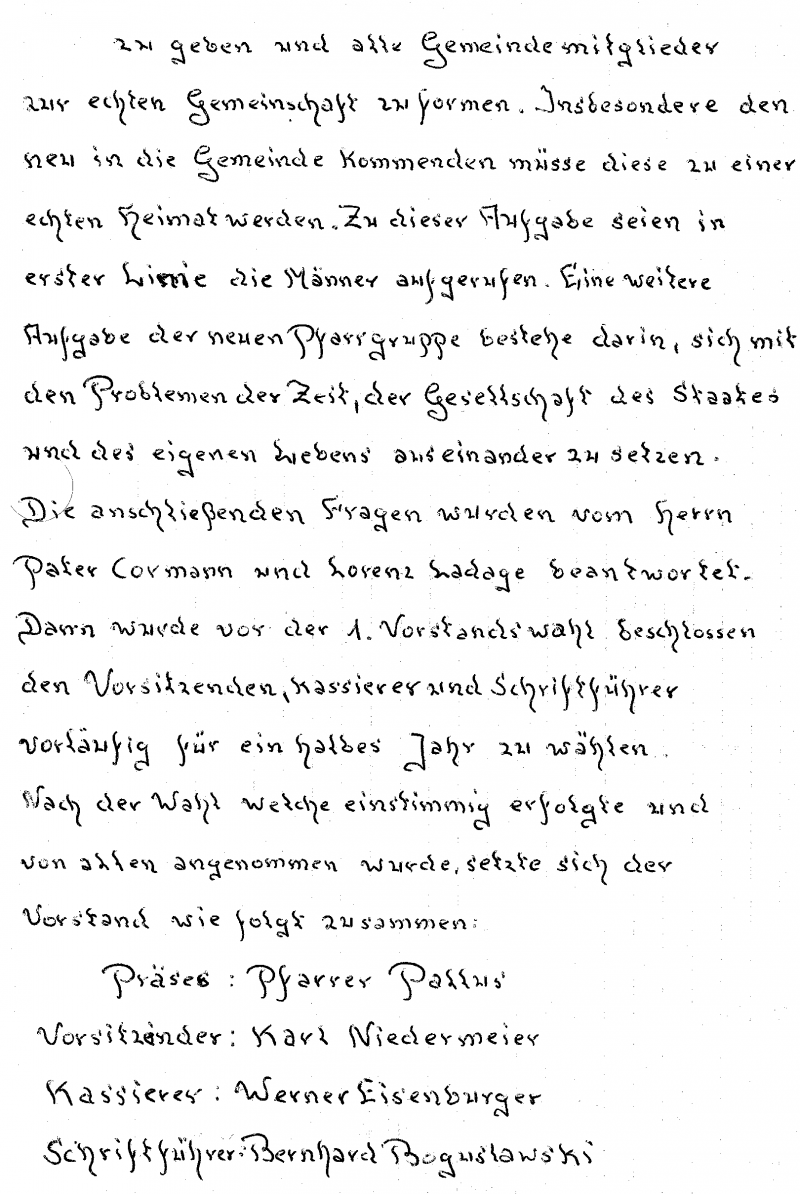 zu geben und alle Gemeindemitglieder
zur echten Gemeinschaft zu formen. Insbesondere den
neu in die Gemeinde Kommenden müsse diese zu einer
echten Heimat werden. Zu dieser Aufgabe seien in
erster Linie die Männer aufgerufen. Eine weitere
Aufgabe der neuen Pfarrgruppe bestehe darin, sich mit
den Problemen der Zeit, der Gesellschaft des Staates
und des eigenen Lebens auseinander zu setzen.
Die anschließenden Fragen wurden vom Herrn
Pater Cormann und Lorenz Ladage beantwortet.
Dann wurde vor der 1. Vorstandswahl beschlossen
den Vorsitzenden, Kassierer und Schriftführer
vorläufig für ein halbes Jahr zu wählen.
Nach der Wahl welche einstimmig erfolgte und
von allen angenommen wurde, setzte sich der
Vorstand wie folgt zusammen:
Präses : Pfarrer Pallus
Vorsitzender: Karl Niedermeier
Kassierer : Werner Eisenburger
Schriftführer: Bernhard Boguslawski